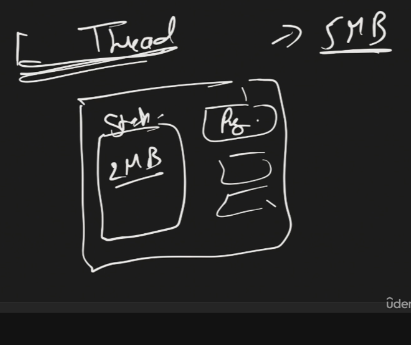 Thread → 5MB
Stack
2MB
Rg.
ûder